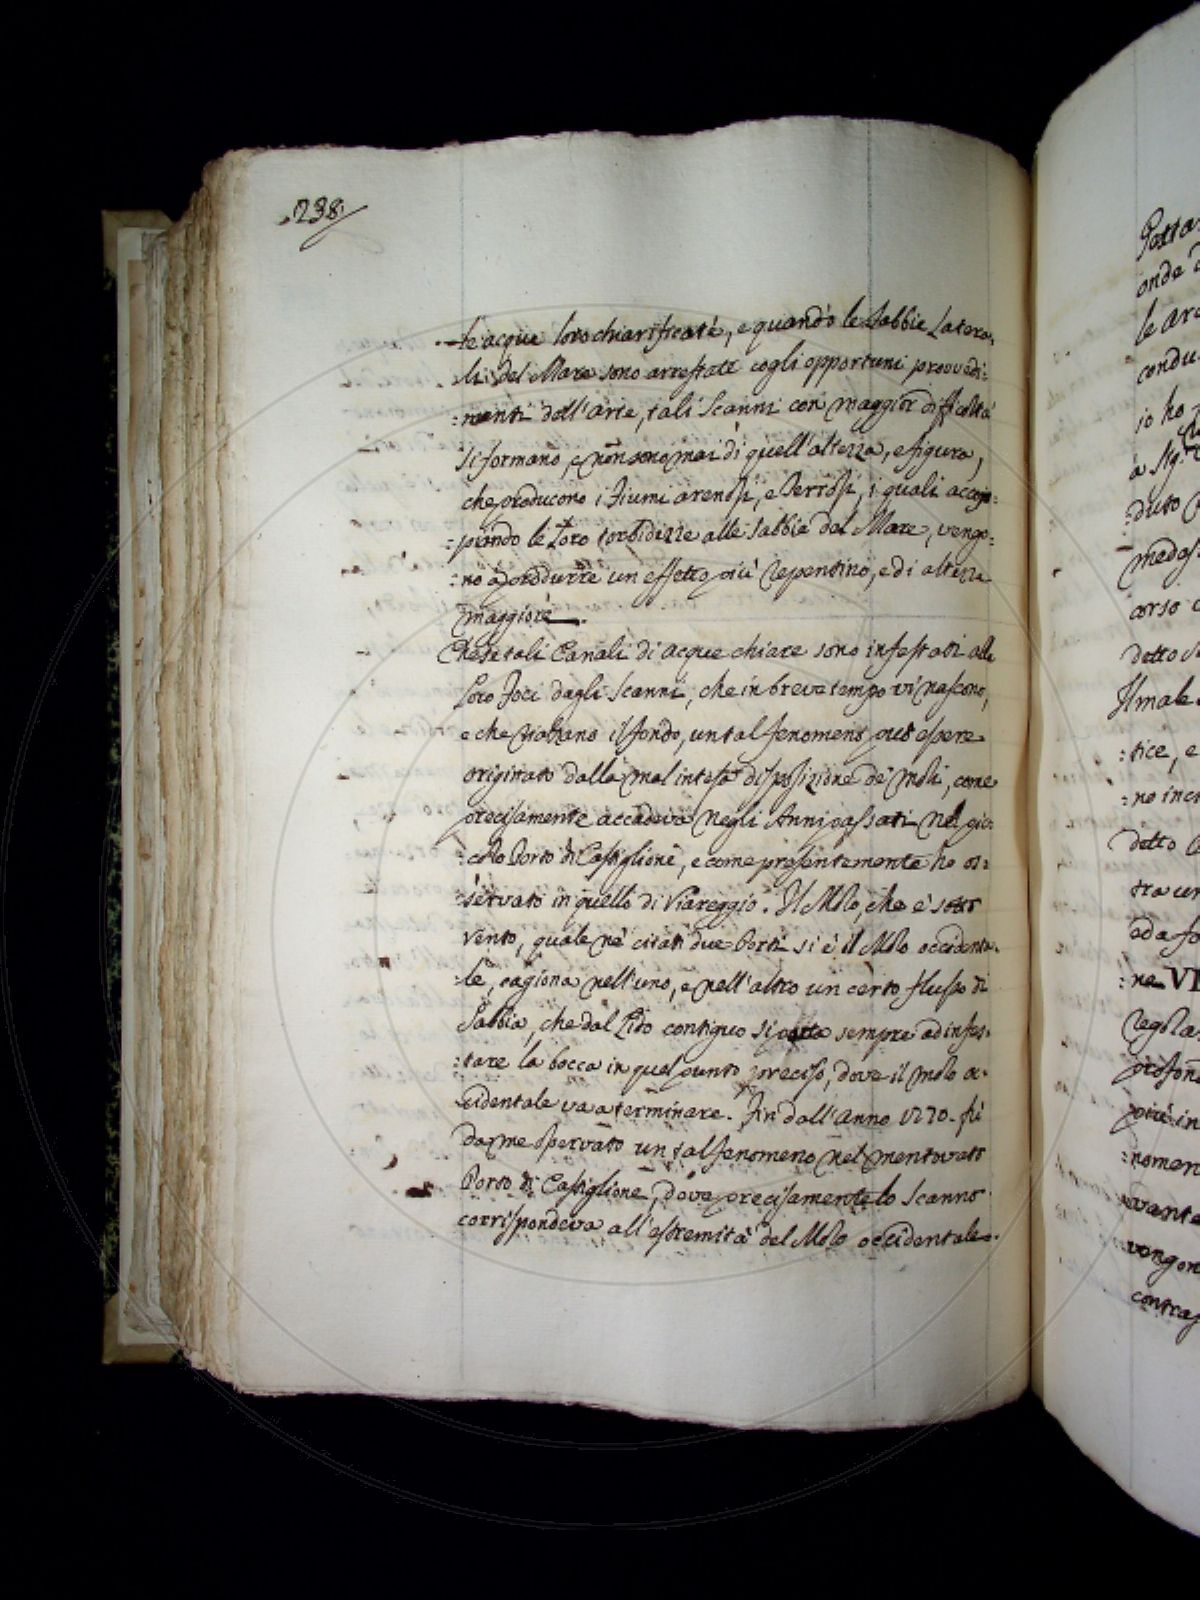 238.
le acque loro chiarificate, e quando le Sabbie Latera:
:li del Mare sono arrestate cogli opportuni provvedi:
:menti dell'arte, tali Scanni con maggior difficoltà
si formano, e non sono mai di quell'altezza, e figura,
che producono i Fiumi arenosi, e Terrosi, i quali accop:
:piando le Loro torbidezze alle Sabbie del Mare, vengo:
:no a produrre un effetto più repentino, e di altezza
maggiore.
Che se tali Canali di acque chiare sono infestati alle
Loro Foci dagli Scanni, che in breve tempo vi nascono,
e che rialzano il fondo, un tal fenomeno può essere
originato dalla mal intesa disposizione de' Moli, come
precisamente accadeva negli Anni passati nel pic:
:colo Porto di Castiglione, e come presentemente ho os:
:servato in quello di Viareggio. Il Molo, che è sotto
vento, quale ne' citati due Porti si è il Molo occidenta:
:le, cagiona nell'uno, e nell'altro un certo flusso di
Sabbia, che dal Lido contiguo si porta sempre ad infes:
:tare la bocca in quel punto preciso, dove il molo oc:
:cidentale va a terminare. Fin dall'anno 1770. fù
da me osservato un tal fenomeno nel mentovato
Porto di Castiglione, dove precisamente lo Scanno
corrispondeva all'estremità del Molo occidentale.
Getta
onde
le are
condu
io ho
a Sig.r
:dito
medes
corso
detto
Il male
:tice, e
:no incr
detto
tra un
ed a fo
:ne VI
regola
profon
più in
:nomen
avante
vengon
contras